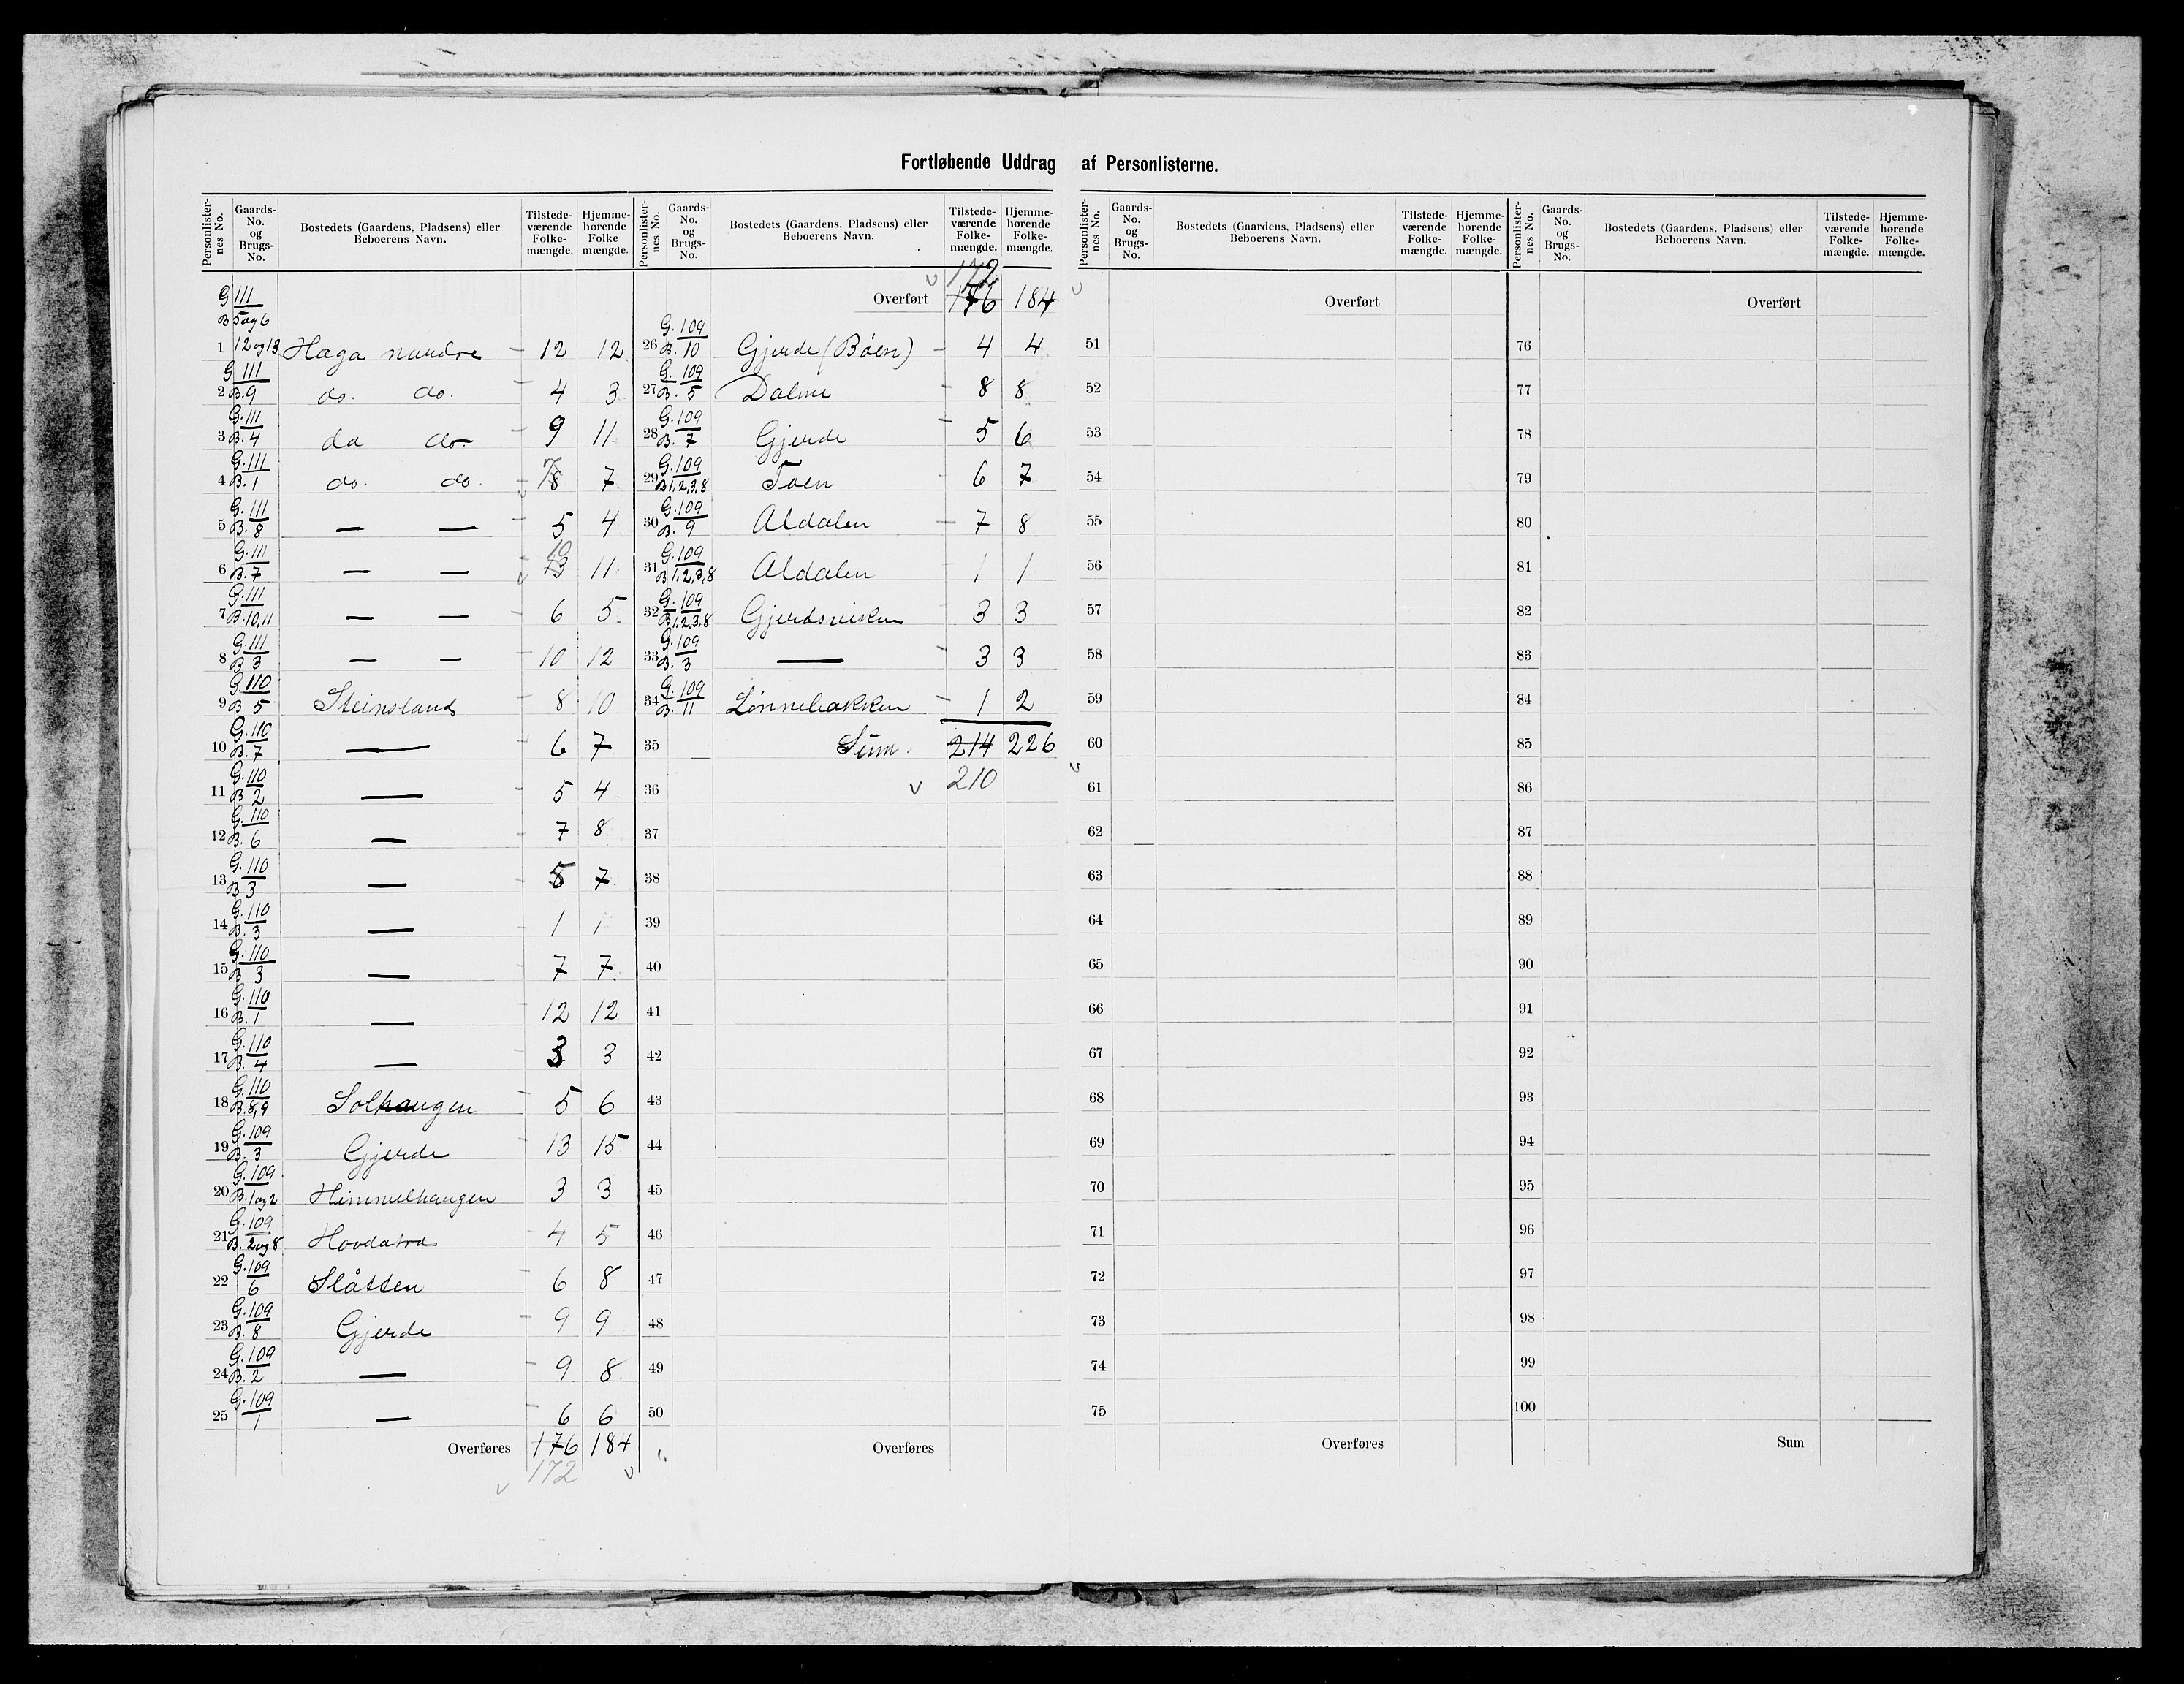 Fortløbende Uddrag af Personlisterne.
Personlister-nes No. Gaards-No. og Brugs-No. Bostedets (Gaardens, Pladsens) eller Beboerens Navn. Tilstede-værende Folke-mængde. Hjemme-hørende Folke mængde.
G 111 B 5 og 6
1 12 og 13 Haga nordre - 12 12
2 G 111 B. 9 do. do. - 4 3
3 G. 111 B. 4 do do - 9 11
4 G. 111 B. 1 do. do. - 8 7 7
5 G. 111 B. 8 — — - 5 4
6 G. 111 B. 7 — — - 13 10 11
7 G. 111 B. 10, 11 — — - 6 5
8 G. 111 B 3 — — - 10 12
9 G. 110 B 5 Steinsland - 8 10
10 G. 110 B. 7 — - 6 7
11 G. 110 B 2 — - 5 4
12 G. 110 B. 6 — - 7 8
13 G. 110 B 3 — - 5 7
14 G. 110 B. 3 — 1 1
15 G. 110 B 3 — - 7 7
16 G. 110 B. 1 — 12 12
17 G. 110 B. 4 — - 3 3
18 G. 110 B. 8, 9 Solhaugen - 5 6
19 G. 109 B. 3 Gjerde - 13 15
20 G. 109 B. 1 og 2 Himmelhaugen 3 3
21 G. 109 B. 2 og 8 - 4 5
22 G. 109 6 Slåtten - 6 8
23 G. 109 B. 8 Gjerde - 9 9
24 G. 109 B. 2 — - 9 8
25 G. 109 1 — - 6 6
Overføres 176 184
v 172 v
Personlister-nes No. Gaards-No. og Brugs-No. Bostedets (Gaardens, Pladsens) eller Beboerens Navn. Tilstede-værende Folke-mængde. Hjemme-hørende Folke-mængde.
v 172
Overført 176 184
26 G. 109 B. 10 Gjerde (Böen) - 4 4
27 G. 109 B. 5 Dalene - 8 8
28 G. 109 B. 7 Gjerde - 5 6
29 G. 109 B 1, 2, 3, 8 Toen 6 7
30 G. 109 B. 9 Aldalen - 7 8
31 G. 109 B 1, 2, 3, 8 Aldalen - 1 1
32 G. 109 B. 1, 2, 3, 8 3 3
33 G. 109 B. 3 — - 3 3
34 G. 109 B. 11 Lönnebakken - 1 2
35 Sum. 214 226
36 v 210
37
38
39
40
41
42
43
44
45
46
47
48
49
50
Overføres
Personlister-nes No. Gaards-No. og Brugs-No. Bostedets (Gaardens, Pladsens) eller Beboerens Navn. Tilstede-værende Folke-mængde. Hjemme-hørende Folke-mængde.
Overført
51
52
53
54
55
56
57
58
59
60
61
62
63
64
65
66
67
68
69
70
71
72
73
74
75
Overføres
Personlister-nes No. Gaards-No. og Brugs-No. Bostedets (Gaardens, Pladsens) eller Beboerens Navn. Tilstede-værende Folke-mængde. Hjemme-hørende Folke-mængde.
Overført
76
77
78
79
80
81
82
83
84
85
86
87
88
89
90
91
92
93
94
95
96
97
98
99
100
Sum